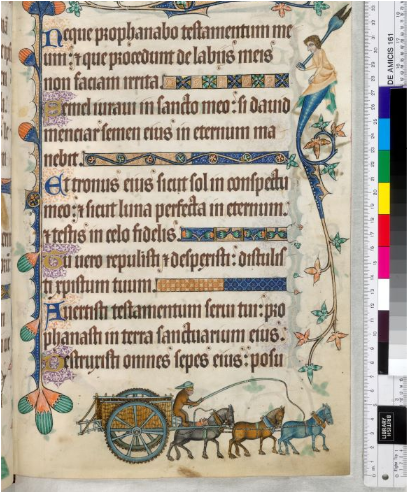 Neque prophanabo testamentum me
um: ⁊ que procedunt de labiis meis
non faciam irrita.
Semel iuraui in sancto meo: si dauid
menciar semen eius in eternum ma
nebit.
Et tronus eius sicut sol in conspectu
meo: ⁊ sicut luna perfecta in eternum.
⁊ testis in celo fidelis.
Tu uero repulisti ⁊ despexisti: distulis
ti xpistum tuum.
Auertisti testamentum serui tui: pro
phanasti in terra sanctuarium eius.
Destruxisti omnes sepes eius: posu
DE AMICIS 161
BRITISH
LIBRARY